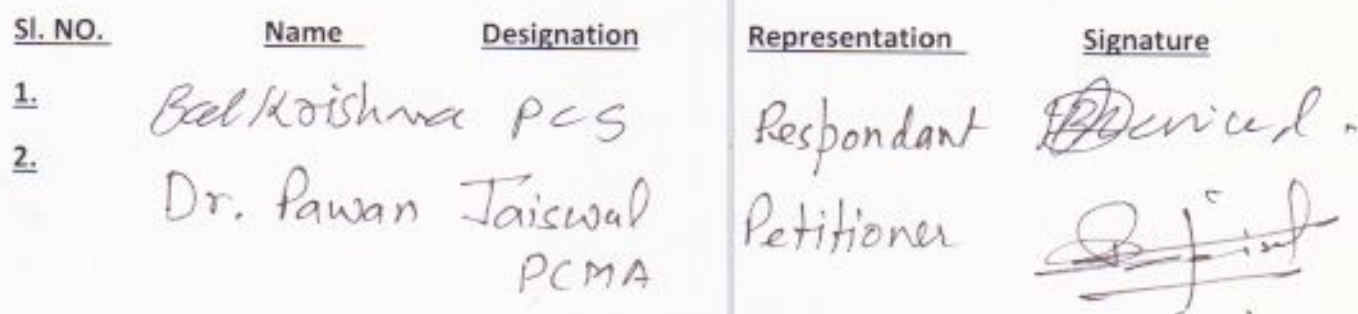 Sl. NO. Name Designation Representation Signature
1. BalKrishna PCS Respondant
2. Dr. Pawan Jaiswal Petitioner
PCMA